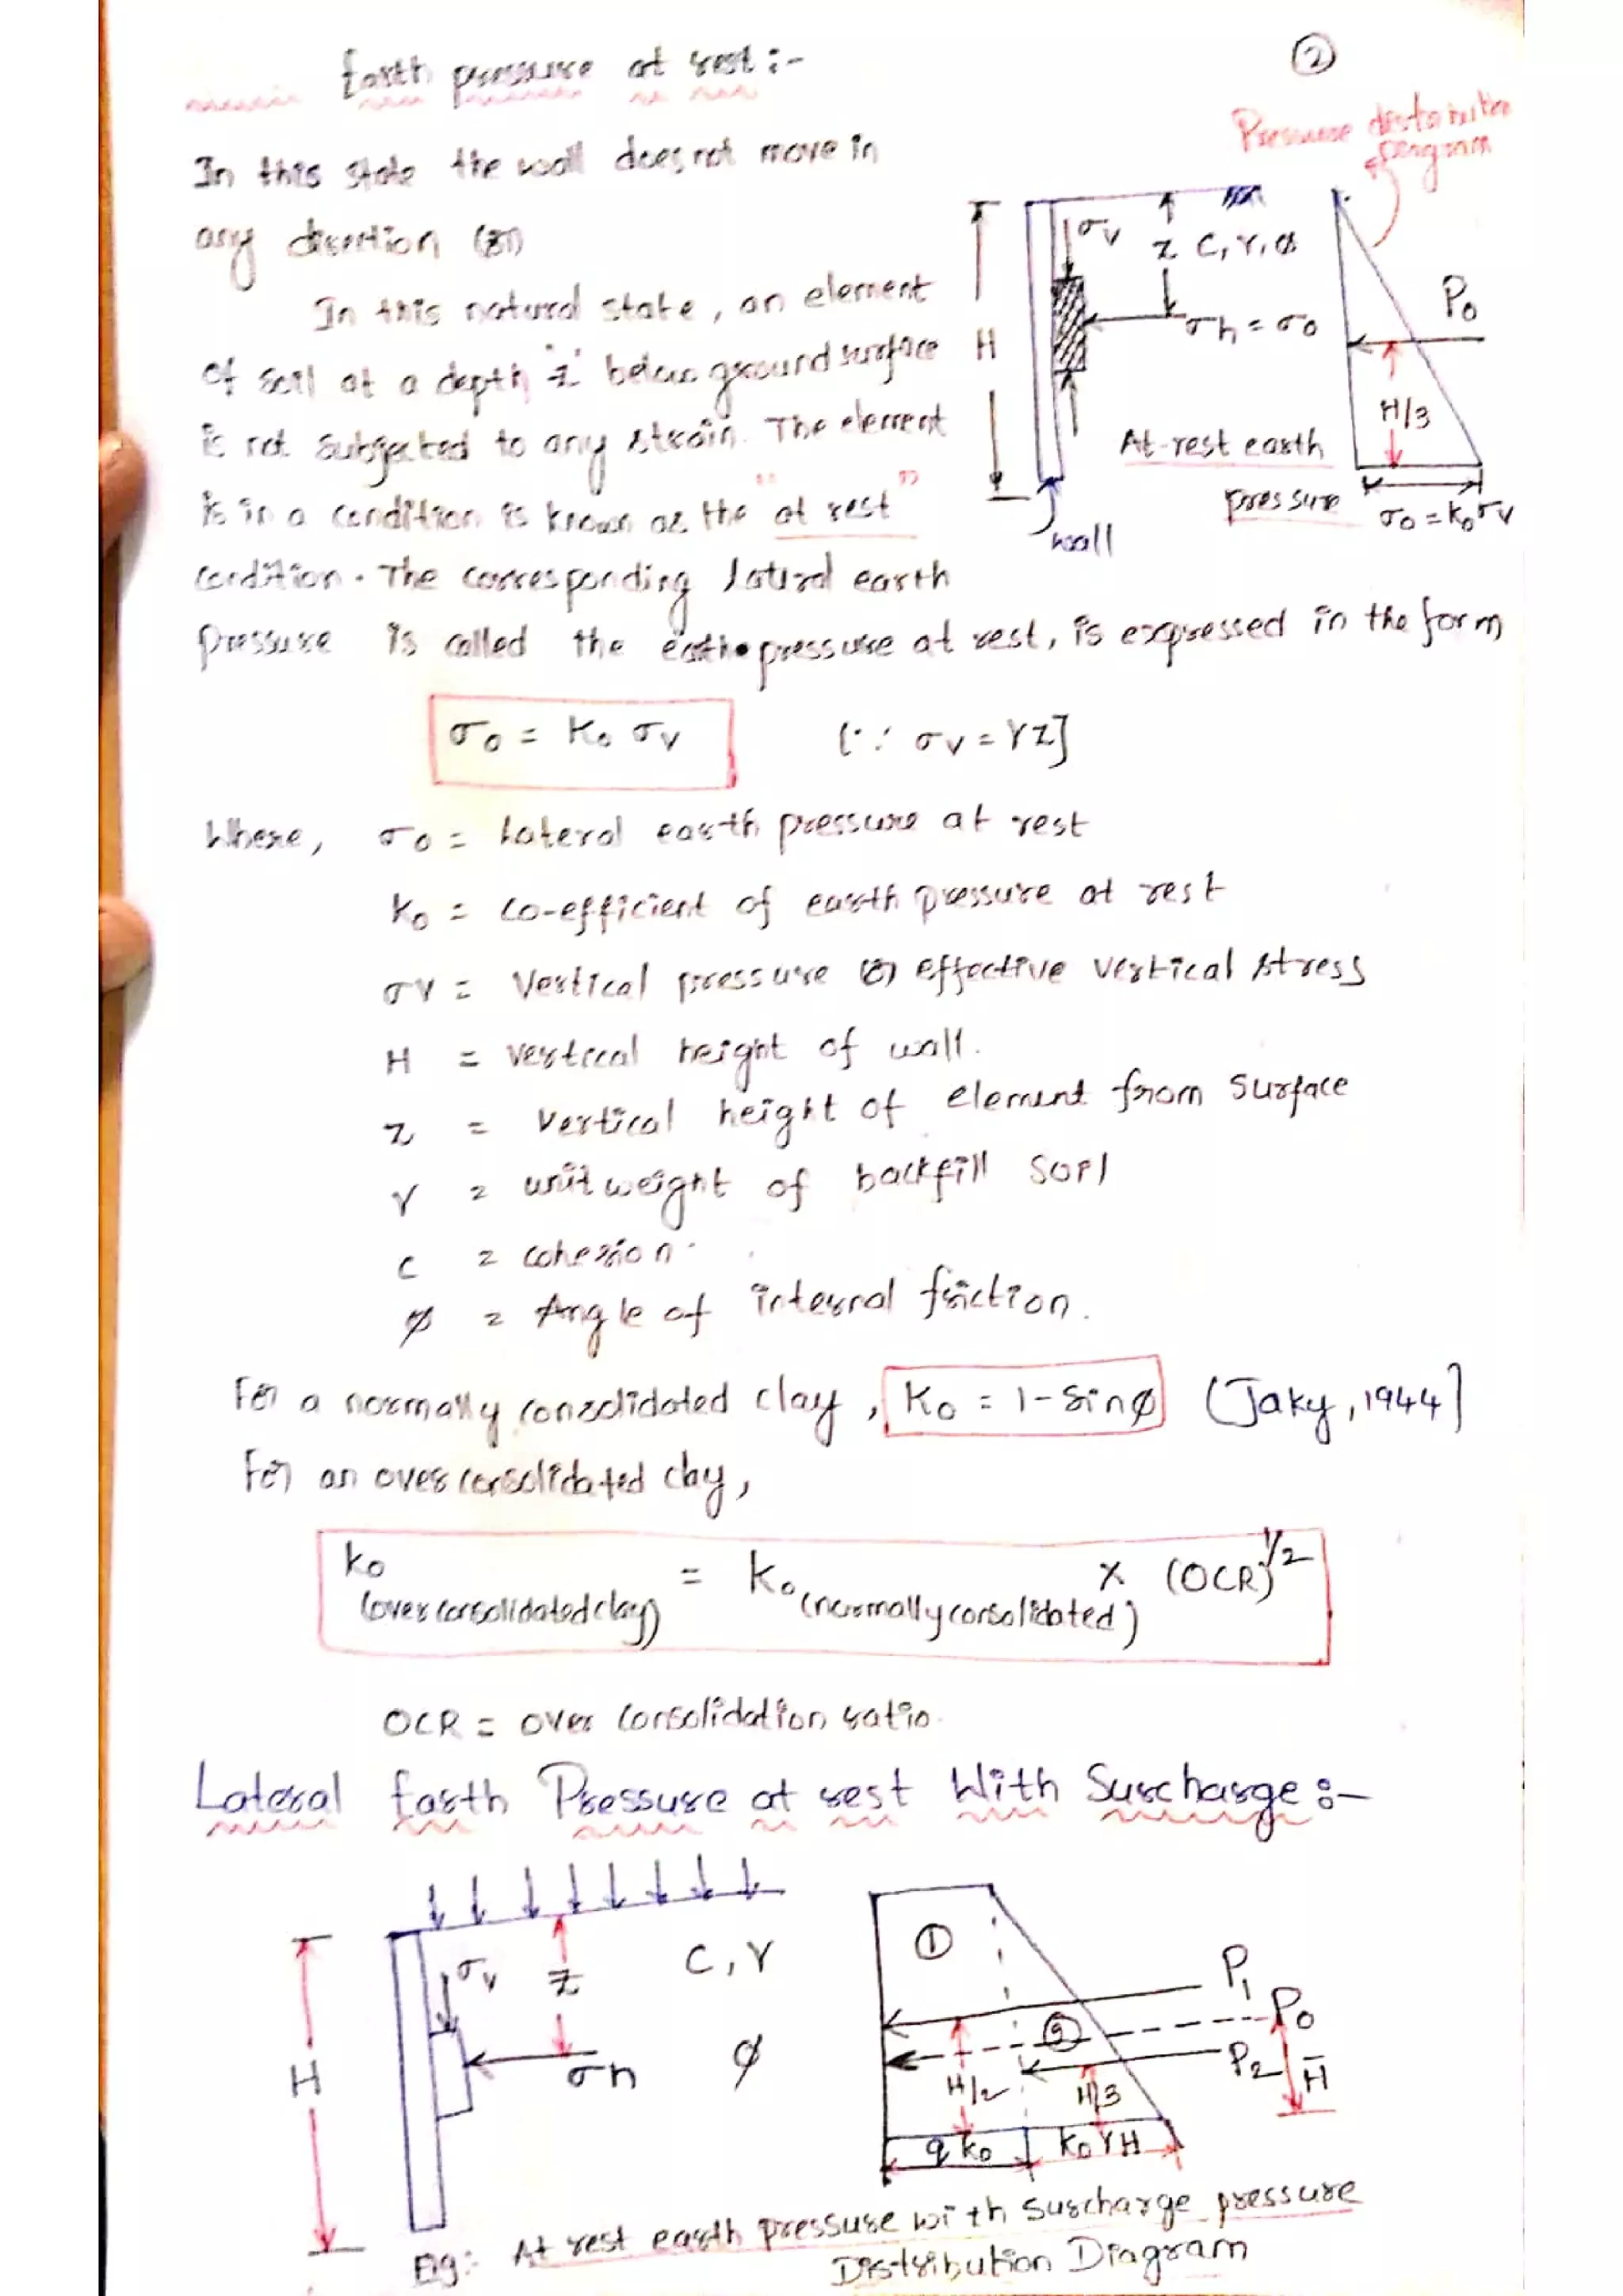 Earth pressure at rest :-
②
Pressure distribution
Diagram
In this state the wall does not move in
any direction (or)
In this natural state, an element
of soil at a depth 'z' below ground surface
is not subjected to any strain. The element
is in a condition is known as the "at rest"
condition. The corresponding lateral earth
pressure is called the earth pressure at rest, is expressed in the form
σv
z C, γ, ø
H
σh = σo
Po
H/3
At-rest earth
pressure
σo = koσv
wall
σo = Ko σv [∵ σv = γz]
Where, σo = Lateral earth pressure at rest
Ko = Co-efficient of earth pressure at rest
σv = Vertical pressure (or) effective vertical stress
H = vertical height of wall.
z = Vertical height of element from surface
γ = unit weight of backfill soil
c = cohesion.
ø = Angle of internal friction.
For a normally consolidated clay, Ko = 1-Sinø (Jaky, 1944]
For an over consolidated clay,
ko (over consolidated clay) = Ko (normally consolidated) X (OCR)^1/2
OCR = over Consolidation ratio.
Lateral Earth Pressure at rest With Surcharge :-
σv z C, γ
H
σh ø
①
P1
②
Po
P2
H/2 H/3 H̄
q ko
ko γH
Fig: At rest earth pressure with surcharge pressure
Distribution Diagram